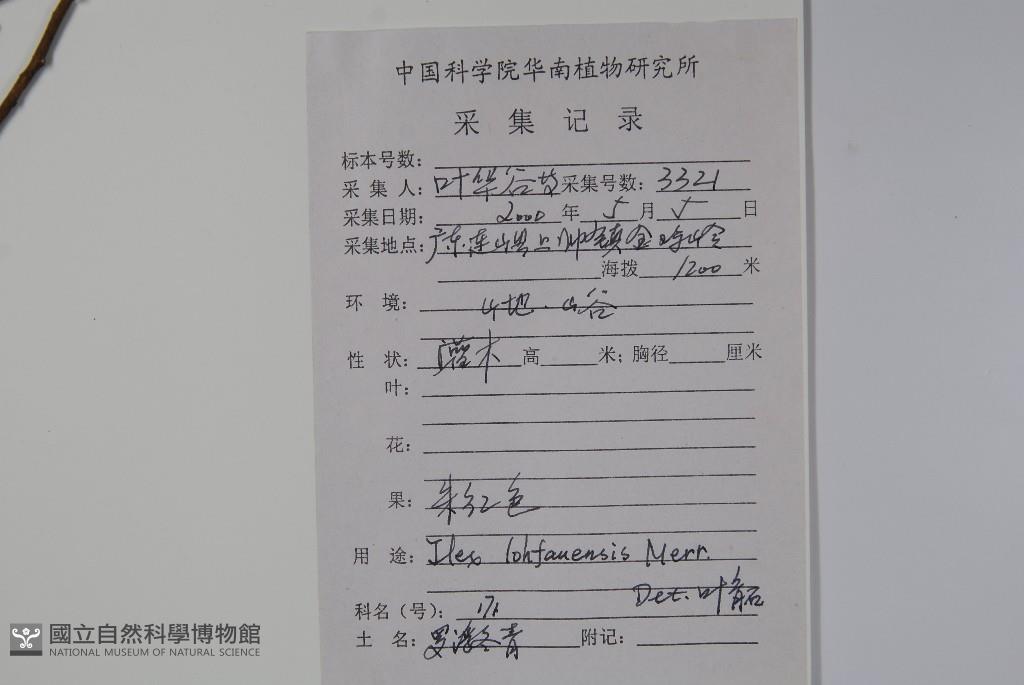 中国科学院华南植物研究所
采集记录
标本号数：
采集人：叶华谷等 采集号数：3321
采集日期： 2000 年 5 月 5 日
采集地点：广东连山县上帅镇金
海拨 1200 米
环境： 山地·山谷
性状： 灌木 高 米；胸径 厘米
叶：
花：
果： 朱红色
用途： Ilex lohfauensis Merr.
Det. 叶
科名（号）： 171
土名： 罗浮冬青 附记：
國立自然科學博物館
NATIONAL MUSEUM OF NATURAL SCIENCE